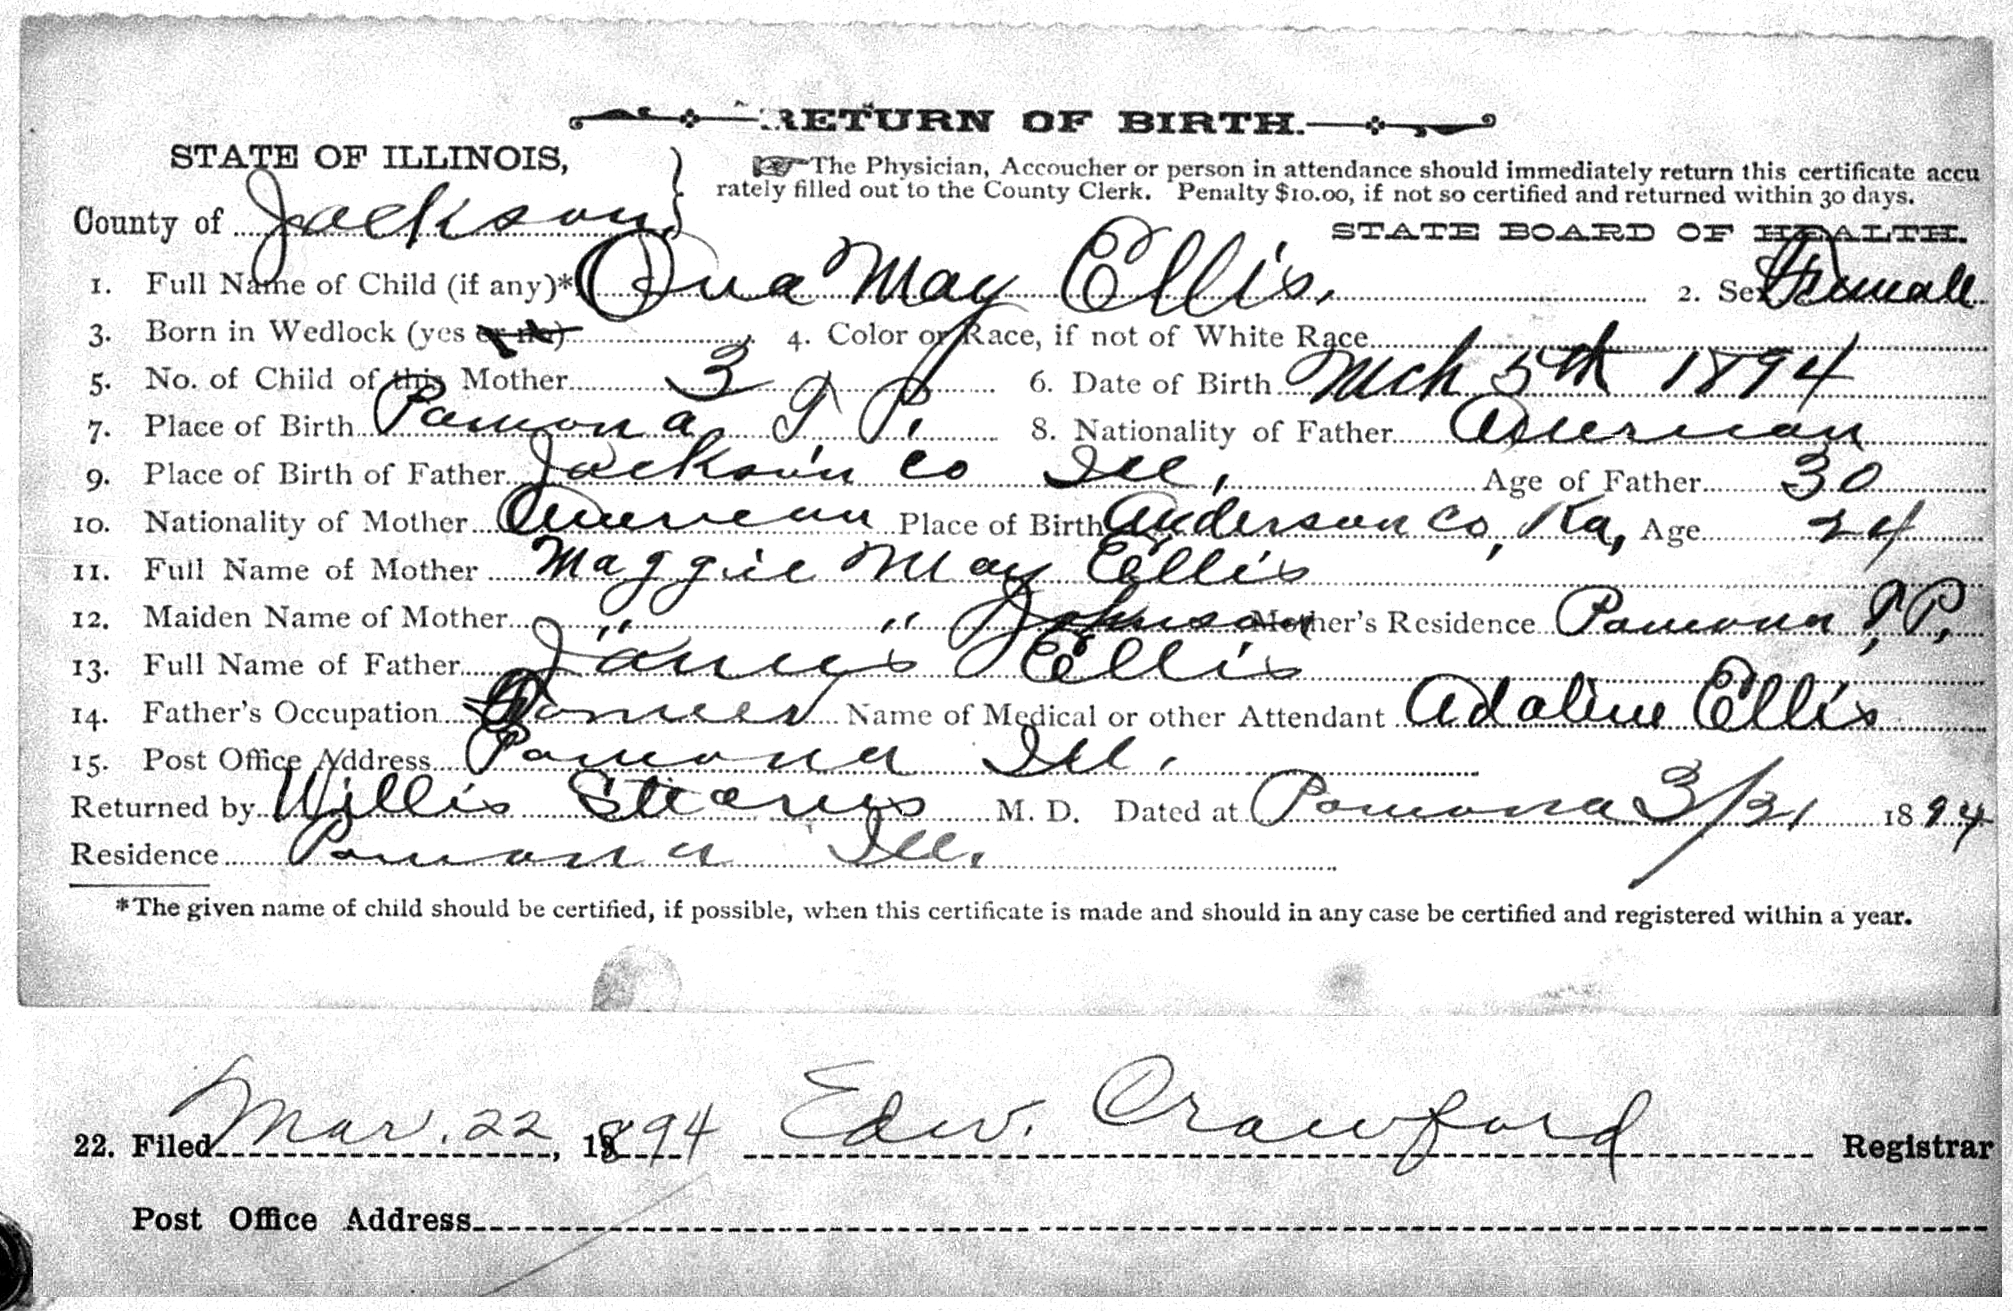 RETURN OF BIRTH.
STATE OF ILLINOIS,
The Physician, Accoucher or person in attendance should immediately return this certificate accu
rately filled out to the County Clerk. Penalty $10.00, if not so certified and returned within 30 days.
County of Jackson
STATE BOARD OF HEALTH.
1. Full Name of Child (if any)* May Ellis. 2. Sex Female
3. Born in Wedlock (yes or no) 4. Color or Race, if not of White Race
5. No. of Child of this Mother 3 6. Date of Birth Mch 5th 1894
7. Place of Birth Pomona T. P. 8. Nationality of Father American
9. Place of Birth of Father Jackson Co Ill, Age of Father 30
10. Nationality of Mother American Place of Birth Anderson Co, Ka, Age 24
11. Full Name of Mother Maggie May Ellis
12. Maiden Name of Mother " " Johnson Mother's Residence Pomona T. P.
13. Full Name of Father James Ellis
14. Father's Occupation Farmer Name of Medical or other Attendant Adaline Ellis
15. Post Office Address Pomona Ill.
Returned by Willis Stearns M. D. Dated at Pomona 3/21 1894
Residence Pomona Ill.
*The given name of child should be certified, if possible, when this certificate is made and should in any case be certified and registered within a year.
22. Filed Mar. 22, 1894 Edw. Crawford Registrar
Post Office Address